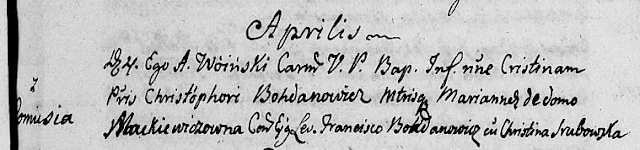 Aprilis
Dẏ 4. Ego A. Woinski Carm V. P. Bap. Inf. nñe Cristinam
z Pris Christophori Bohdanowicz Mtrisq Mariannæ de domo
omusia Mackiewiczowna Con Ejq Lev. Francisco Bohdanowicz cũ Christina Srubowska